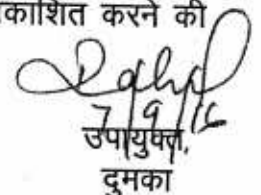 काशित करने की
7/9/16
उपायुक्त,
दुमका